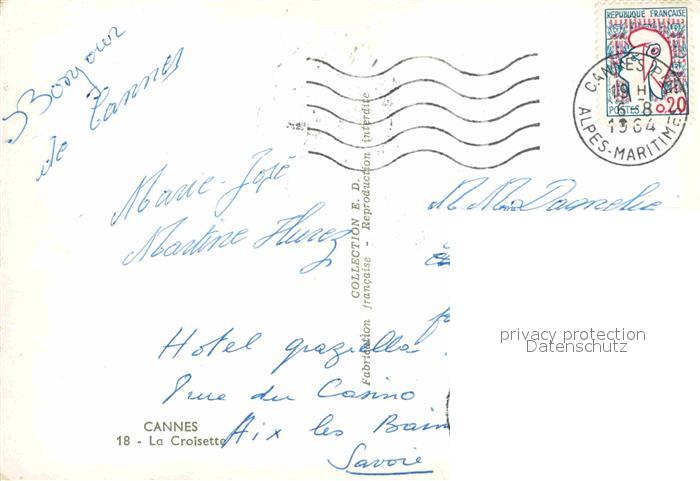 Bonjour
de Cannes
Marie-José
Martine
CANNES
18 - La Croisette
COLLECTION E. D.
Fabrication française - Reproduction interdite
REPUBLIQUE FRANÇAISE
POSTES 0,20
CANNES
19 H
6-8
1964
ALPES-MARITIMES
M. M
Hotel graziella
rue du Casino
Aix les Bain
Savoie
privacy protection
Datenschutz